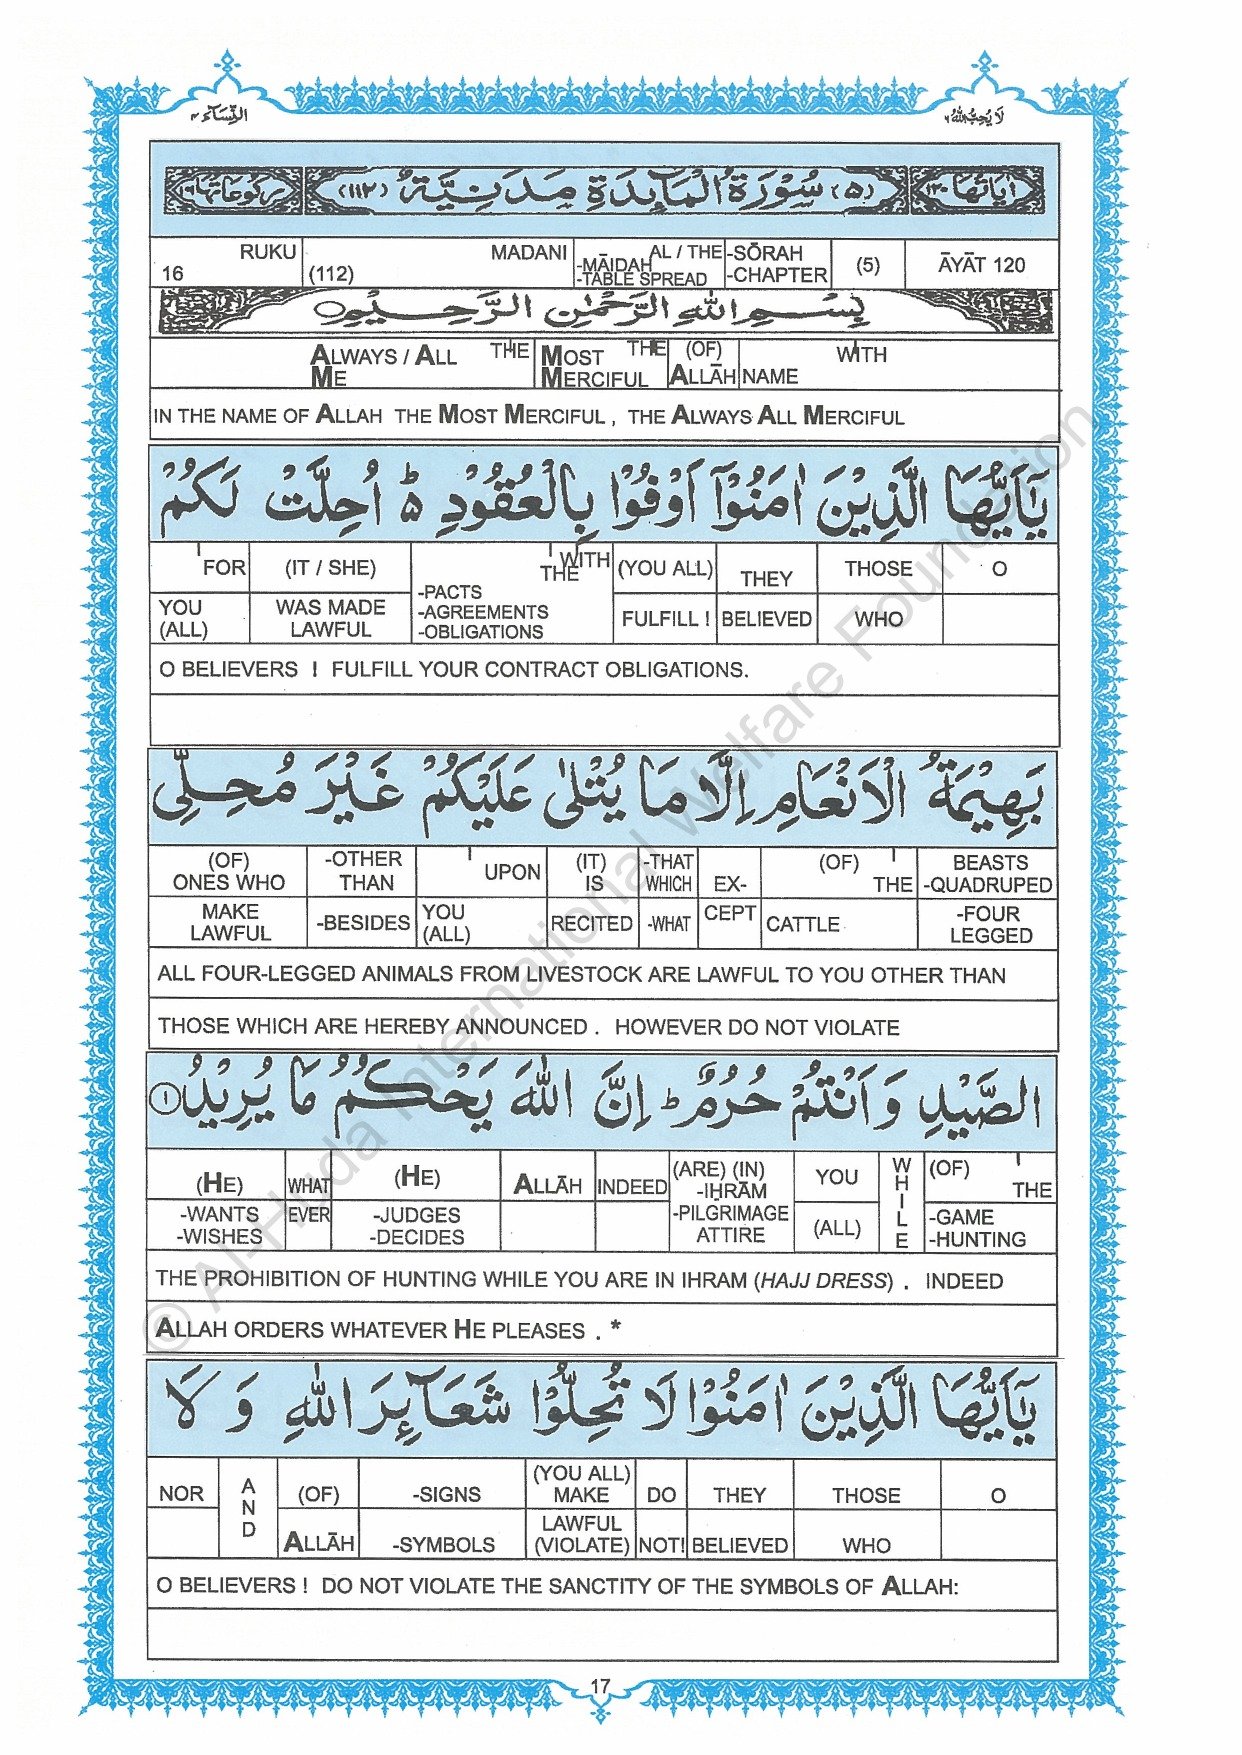 النِّسَآء ٤
لَا يُحِبُّ اللّٰهُ ٦
اٰيَاتُهَا ١٢٠ (٥) سُوْرَةُ الْمَآئِدَةِ مَدَنِيَّةٌ (١١٢) رُكُوْعَاتُهَا ١٦
RUKU 16
MADANI (112)
AL / THE -MĀIDAH -TABLE SPREAD
-SŌRAH -CHAPTER
(5)
ĀYĀT 120
بِسْمِ اللّٰهِ الرَّحْمٰنِ الرَّحِيْمِ
ALWAYS / ALL THE MOST THE (OF) WITH
ME MERCIFUL ALLĀH NAME
IN THE NAME OF ALLAH THE MOST MERCIFUL , THE ALWAYS ALL MERCIFUL
يٰۤاَيُّهَا الَّذِيْنَ اٰمَنُوْۤا اَوْفُوْا بِالْعُقُوْدِ ؕ اُحِلَّتْ لَكُمْ
FOR (IT / SHE) WITH THE (YOU ALL) THEY THOSE O
YOU (ALL) WAS MADE LAWFUL -PACTS -AGREEMENTS -OBLIGATIONS FULFILL ! BELIEVED WHO
O BELIEVERS ! FULFILL YOUR CONTRACT OBLIGATIONS.
بَهِيْمَةُ الْاَنْعَامِ اِلَّا مَا يُتْلٰى عَلَيْكُمْ غَيْرَ مُحِلِّى
(OF) ONES WHO -OTHER THAN UPON (IT) IS -THAT WHICH EX- (OF) THE BEASTS -QUADRUPED
MAKE LAWFUL -BESIDES YOU (ALL) RECITED -WHAT CEPT CATTLE -FOUR LEGGED
ALL FOUR-LEGGED ANIMALS FROM LIVESTOCK ARE LAWFUL TO YOU OTHER THAN
THOSE WHICH ARE HEREBY ANNOUNCED . HOWEVER DO NOT VIOLATE
الصَّيْدِ وَ اَنْتُمْ حُرُمٌ ؕ اِنَّ اللّٰهَ يَحْكُمُ مَا يُرِيْدُ ١
(HE) WHAT (HE) ALLĀH INDEED (ARE) (IN) -IḤRĀM YOU WHILE (OF) THE
-WANTS -WISHES EVER -JUDGES -DECIDES -PILGRIMAGE ATTIRE (ALL) -GAME -HUNTING
THE PROHIBITION OF HUNTING WHILE YOU ARE IN IHRAM (HAJJ DRESS) . INDEED
ALLAH ORDERS WHATEVER HE PLEASES . *
يٰۤاَيُّهَا الَّذِيْنَ اٰمَنُوْا لَا تُحِلُّوْا شَعَآئِرَ اللّٰهِ وَ لَا
NOR AND (OF) -SIGNS (YOU ALL) MAKE DO THEY THOSE O
ALLĀH -SYMBOLS LAWFUL (VIOLATE) NOT! BELIEVED WHO
O BELIEVERS ! DO NOT VIOLATE THE SANCTITY OF THE SYMBOLS OF ALLAH:
17
© Al-Huda International Welfare Foundation